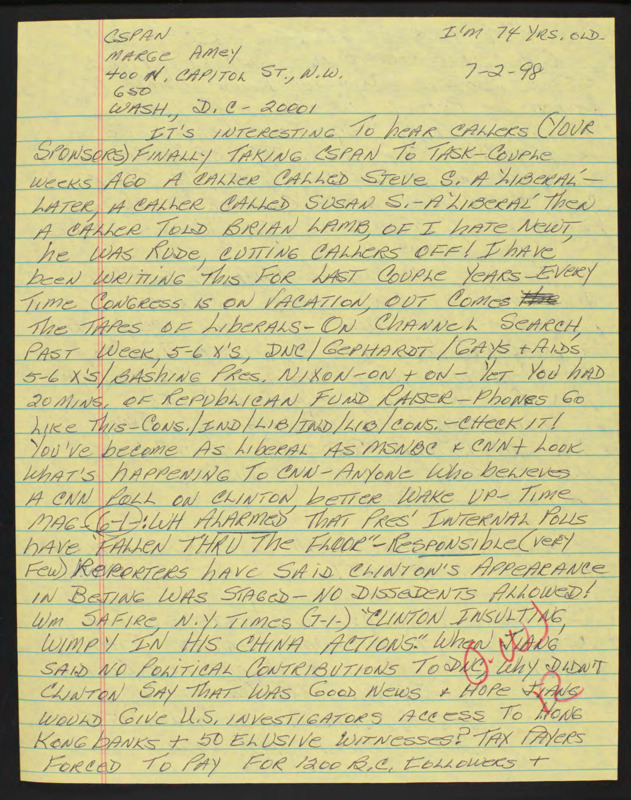 CSPAN I'M 74 YRS. OLD.
MARGE AMEY
400 N. CAPITOL ST., N.W. 7-2-98
650
WASH, D.C - 20001
IT'S INTERESTING TO hEAR CALLERS (YOUR
SPONSORS) FINALLY TAKING CSPAN TO TASK-COUPLE
WEEKS AGO A CALLER CALLED STEVE S. A 'LIBERAL'-
LATER, A CALLER CALLED SUSAN S.-A 'LIBERAL' THEN
A CALLER TOLD BRIAN LAMB, OF I HATE NEWT,
hE WAS RUDE, CUTTING CALLERS OFF! I HAVE
bEEN WRITING THIS FOR LAST COUPLE YEARS-EVERY
TIME CONGRESS IS ON VACATION, OUT COMES
THE TAPES OF LIBERALS-ON CHANNEL SEARCH,
PAST WEEK, 5-6 X'S, DNC/GEPHARDT/GAYS + AIDS,
5-6 X'S/BASHING PRES. NIXON-ON + ON- YET YOU HAD
20 MINS. OF REPUBLICAN FUND RAISER-PHONES GO
LIKE THIS-CONS./IND/LIB/IND/LIB/CONS.-CHECK IT!
YOU'VE bECOME AS LIBERAL AS MSNBC & CNN + LOOK
WHAT'S hAPPENING TO CNN-ANYONE WHO bELIEVES
A CNN POLL ON CLINTON, bETTER WAKE UP-TIME
MAG-(6-1-): WH ALARMED THAT PRES' INTERNAL POLLS
hAVE "FALLEN THRU THE FLOOR"-RESPONSIBLE (VERY
FEW) REPORTERS hAVE SAID CLINTON'S APPEARANCE
IN BEIJING WAS STAGED-NO DISSEDENTS ALLOWED!
WM SAFIRE, N.Y. TIMES (7-1-) "CLINTON INSULTING,
WIMPY IN HIS CHINA ACTIONS." WHEN JIANG
SAID NO POLITICAL CONTRIBUTIONS TO DNC, WHY DIDN'T
CLINTON SAY THAT WAS GOOD NEWS & HOPE JIANG
WOULD GIVE U.S. INVESTIGATORS ACCESS TO HONG
KONG bANKS + 50 ELUSIVE WITNESSES? TAX PAYERS
FORCED TO PAY FOR 1200 B.C. FOLLOWERS +